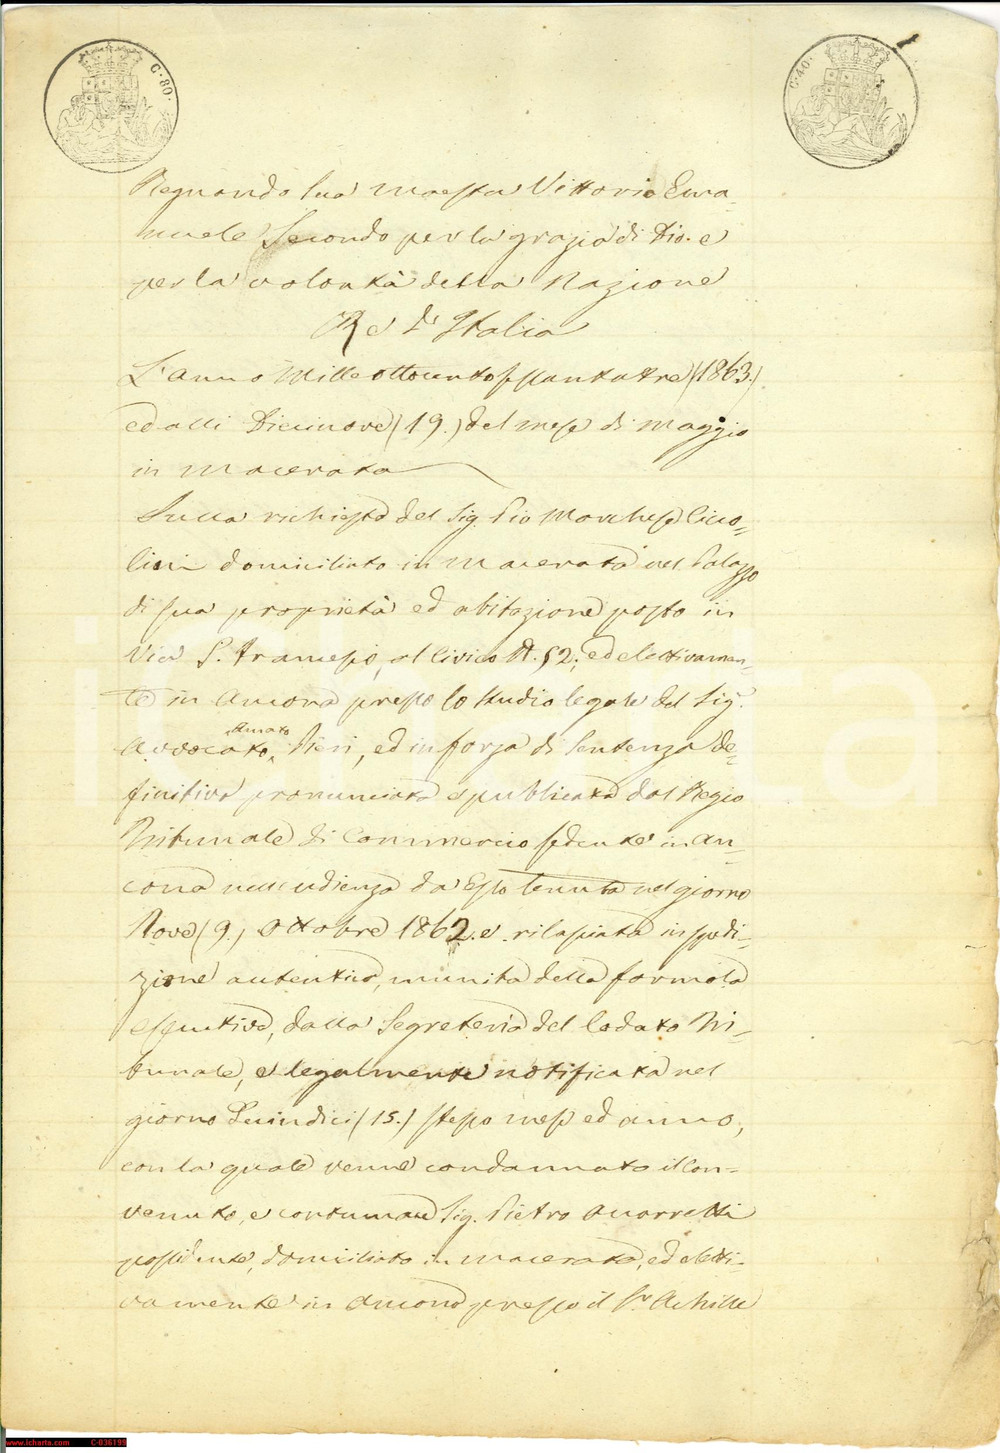 C. 80.
C. 40.
Regnando Sua Maestà Vittorio Ema-
nuele Secondo per la grazia di Dio e
per la volontà della Nazione
Re d'Italia
L'anno Mille ottocento sessantatre (1863.)
ed alli Diecinove (19.) del mese di Maggio
in Macerata
Sulla richiesta del Sig. Pio Marchese Cicco-
lini domiciliato in Macerata nel Palazzo
di sua proprietà ed abitazione posto in
Via S. Francesco, al Civico N. 52; ed elettivamen-
te in Ancona presso lo studio legale del Sig.r
Avvocato Amato Pieri, ed in forza di Sentenza de-
finitiva pronunciata e pubblicata dal Regio
Tribunale di Commercio sedente in An-
cona nell'udienza da Esso tenuta nel giorno
Nove (9.) Ottobre 1862. e rilasciata in spedi-
zione autentica, munita della formola
esecutiva, dalla Segreteria del lodato Tri-
bunale, e legalmente notificata nel
giorno Quindici (15.) stesso mese ed anno,
con la quale venne condannato il Con-
venuto, e contumace Sig. Pietro
possidente, domiciliato in Macerata, ed eletti-
vamente in Ancona presso il Sr Achille
www.icharta.com C-036199